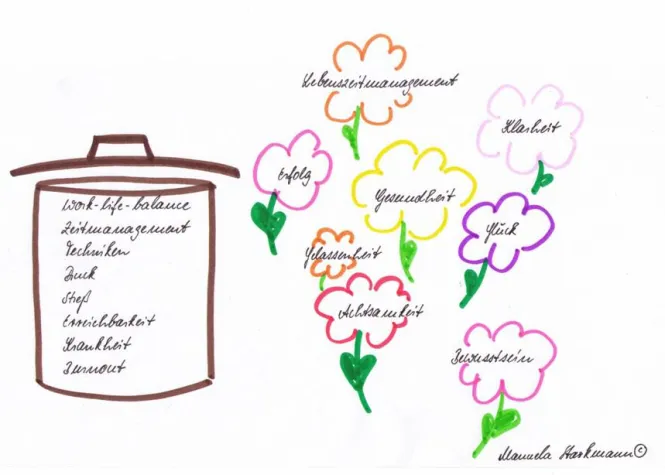 Work-life-balance
Zeitmanagement
Techniken
Druck
Streß
Erreichbarkeit
Krankheit
Burnout
Lebenszeitmanagement
Klarheit
Erfolg
Gesundheit
Glück
Gelassenheit
Achtsamkeit
Bewusstsein
Manuela Starkmann ©